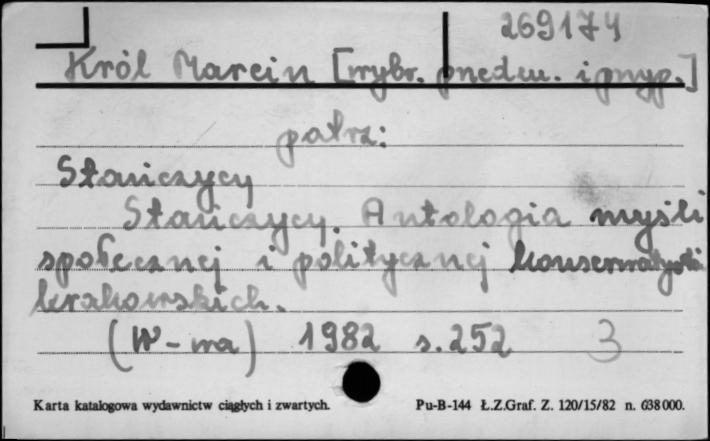 269174
Król Marcin [wybr. przedm. i przyp.]
patrz:
Stańczycy
Stańczycy. Antologia myśli
społecznej i politycznej konserwatystów
krakowskich.
(W-wa) 1982 s. 252 3
Karta katalogowa wydawnictw ciągłych i zwartych. Pu-B-144 Ł.Z.Graf. Z. 120/15/82 n. 638000.